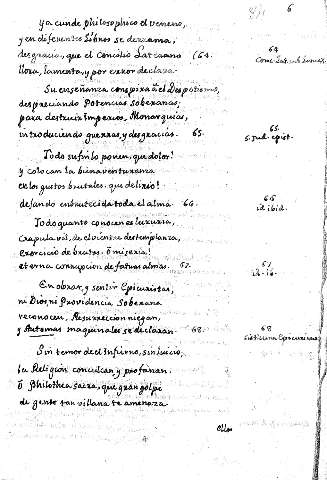 6
ya cunde philosophico el veneno,
y en diferentes Libros se derrama,
desgracia, que el Concilio Lateano (64.
llora, lamenta, y por error declara.
64
Conc. Lat.
Su enseñanza conspira à el Despotismo,
despreciando Potencias soberanas,
para destruir Imperios, Monarquias,
introduciendo guerras, y desgracias. 65.
65.
S. Jud. epist.
Todo su fin lo ponen, que dolor!
y colocan la bienaventuranza
en los gustos brutales. que delirio!
dejando embrutecida toda el alma 66.
66
id ibid.
Todo quanto conocen es luxuria,
crapula vil, de el vientre destemplanza,
exercicio de brutos. ò miseria!
eterna corrupcion de fatuas almas. 67.
67
id-ib-
En obrar, y sentir Epicuristas,
ni Dios, ni Providencia soberana
reconocen, Resurreccion niegan,
y Automas maquinales se declaran. 68.
68
Epicureos
Sin temor de el Infierno, sin juicio,
su Religion conculcan, y profanan.
ò Philothea sacra, que gran golpe
de gente tan villana te amenaza